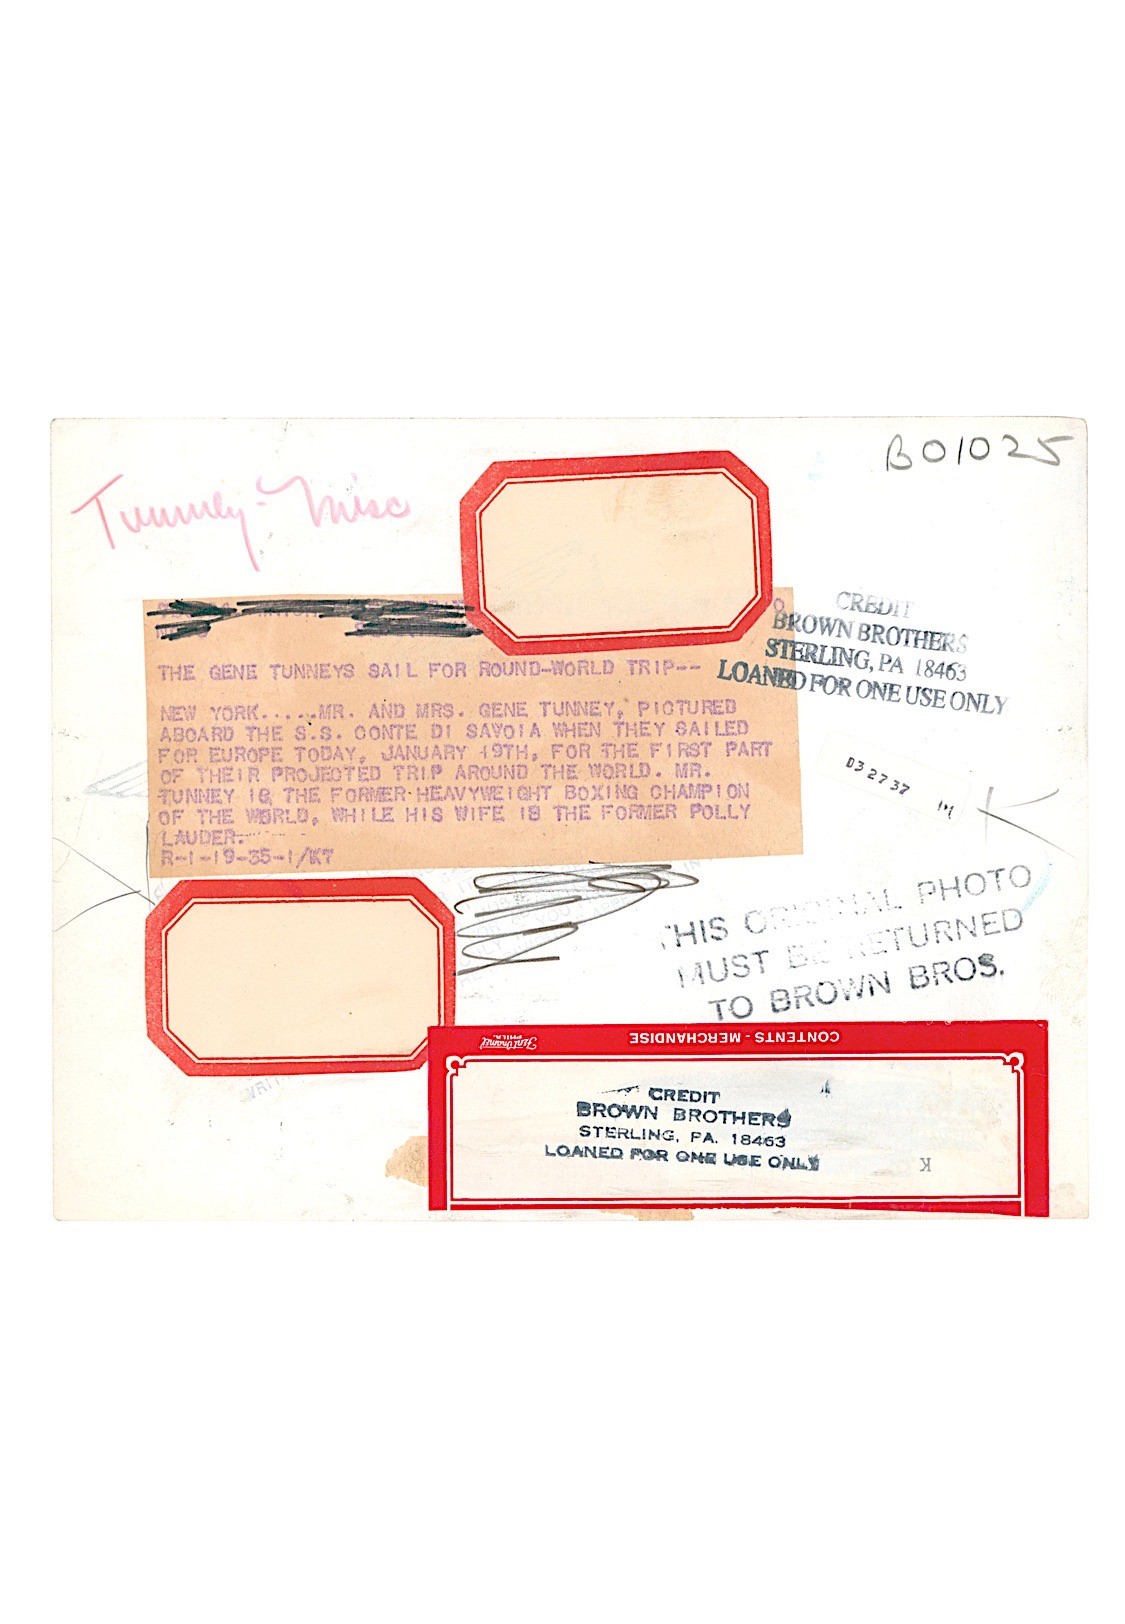 B01025
Tunney - Misc
CREDIT
BROWN BROTHERS
STERLING, PA 18463
LOANED FOR ONE USE ONLY
THE GENE TUNNEYS SAIL FOR ROUND-WORLD TRIP--
NEW YORK.....MR. AND MRS. GENE TUNNEY, PICTURED
ABOARD THE S.S. CONTE DI SAVOIA WHEN THEY SAILED
FOR EUROPE TODAY, JANUARY 19TH, FOR THE FIRST PART
OF THEIR PROJECTED TRIP AROUND THE WORLD. MR.
TUNNEY IS THE FORMER HEAVYWEIGHT BOXING CHAMPION
OF THE WORLD, WHILE HIS WIFE IS THE FORMER POLLY
LAUDER.
R-1-19-35-1/KT
032737
THIS ORIGINAL PHOTO
MUST BE RETURNED
TO BROWN BROS.
CONTENTS - MERCHANDISE
CREDIT
BROWN BROTHERS
STERLING, PA. 18463
LOANED FOR ONE USE ONLY
K